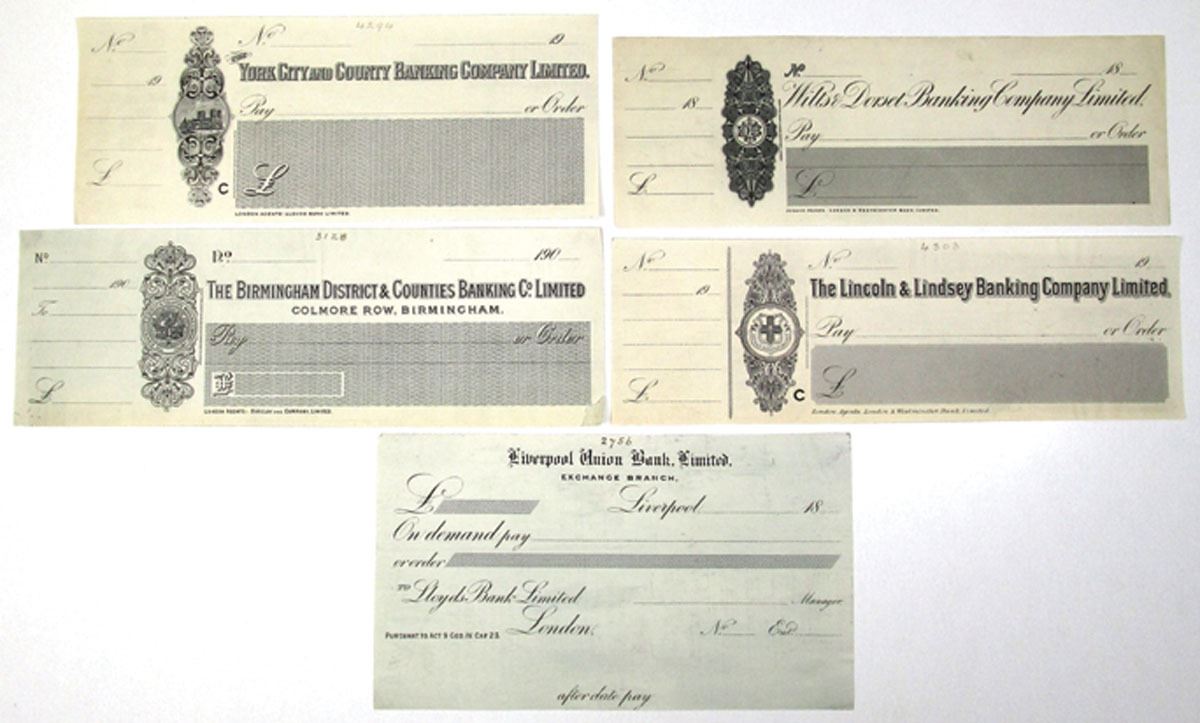 4294
No No 19
19
THE
YORK CITY AND COUNTY BANKING COMPANY LIMITED.
Pay or Order
£ £
C
LONDON AGENTS: LLOYDS BANK LIMITED.
No No 18
18
Wilts & Dorset Banking Company Limited.
Pay or Order
£ £
LONDON & WESTMINSTER BANK, LIMITED.
3128
No No 190
190
THE BIRMINGHAM DISTRICT & COUNTIES BANKING Co. LIMITED
COLMORE ROW, BIRMINGHAM.
To Pay or Order
£ £
LONDON AGENTS:- BARCLAY AND COMPANY, LIMITED.
4303
No No 19
19
The Lincoln & Lindsey Banking Company Limited,
Pay or Order
£ £
C
London Agents, London & Westminster Bank Limited
2756
Liverpool Union Bank, Limited,
EXCHANGE BRANCH,
£ Liverpool 18
On demand pay
or order
TO Lloyds Bank Limited Manager
London. No Ent
PURSUANT TO ACT 9 GEO. IV. CAP 23.
after date pay